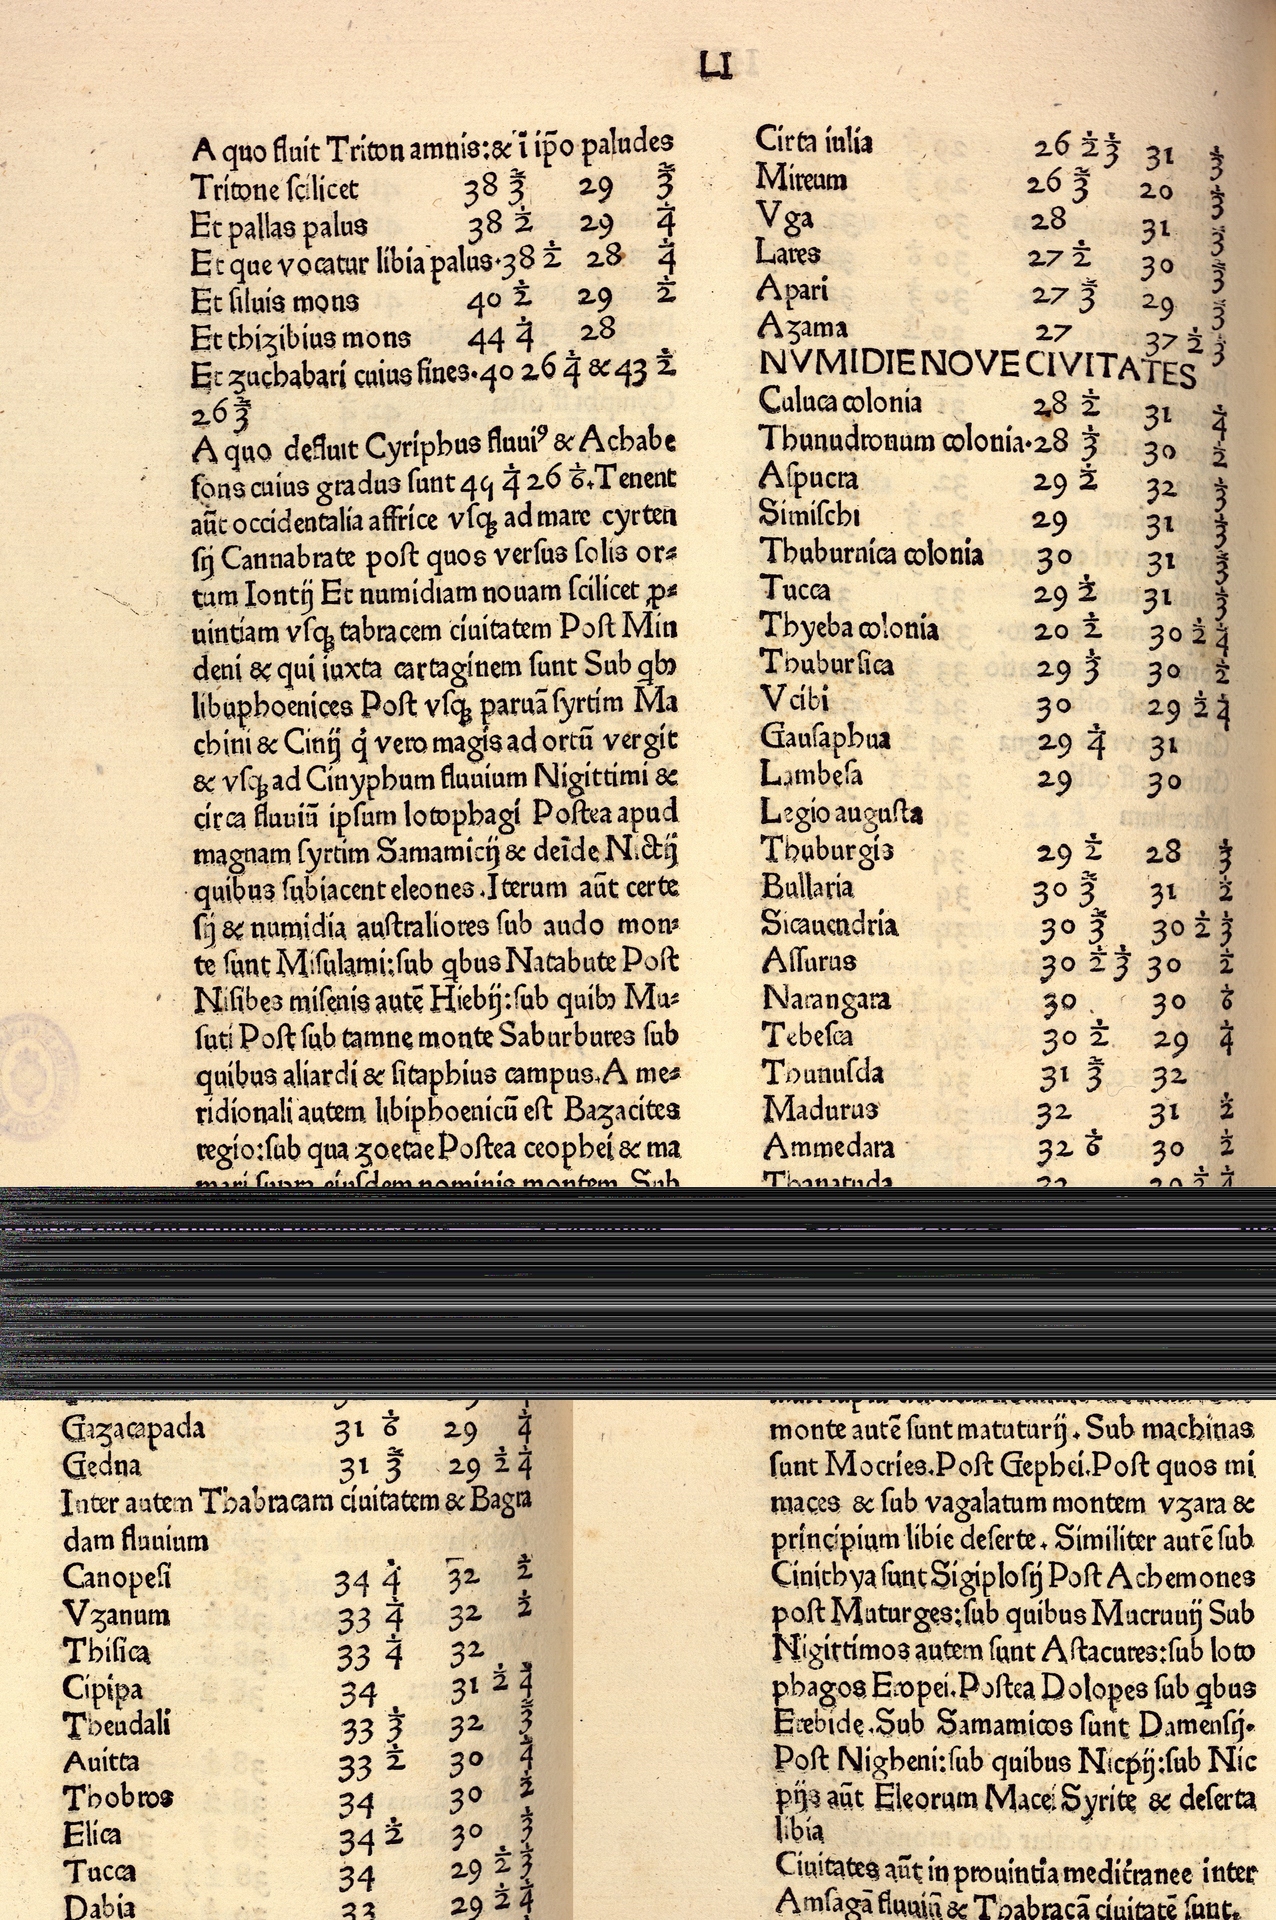 LI
A quo fluit Triton amnis:& ī ip̄o paludes
Tritone scilicet 38 ⅔ 29 ⅔
Et pallas palus 38 ½ 29 ¼
Et que vocatur libia palus.38 ½ 28 ¼
Et siluis mons 40 ½ 29 ½
Et thizibius mons 44 ¼ 28
Et zuchabari cuius fines.40 26 ¼ & 43 ½
26 ⅔
A quo defluit Cyriphus fluuiꝰ & Achabe
fons cuius gradus sunt 44 ¼ 26 ⅙.Tenent
aūt occidentalia affrice vsqꝫ ad mare cyrten
sij Cannabrate post quos versus solis or⸗
tum Iontij Et numidiam nouam scilicet ꝓ⸗
uintiam vsqꝫ tabracem ciuitatem Post Min
deni & qui iuxta cartaginem sunt Sub qbꝫ
libuphoenices Post vsqꝫ paruā syrtim Ma
chini & Cinij q̇ vero magis ad ortū vergit
& vsqꝫ ad Cinyphum fluuium Nigittimi &
circa fluuiū ipsum lotophagi Postea apud
magnam syrtim Samamicij & deīde Nictij
quibus subiacent eleones.Iterum aūt certe
sij & numidia australiores sub audo mon⸗
te sunt Misulami:sub qbus Natabute Post
Nisibes misenis autē Hiebij:sub quibꝫ Mu⸗
suti Post sub tamne monte Saburbures sub
quibus aliardi & sitaphius campus.A me⸗
ridionali autem libiphoenicū est Bazacites
regio:sub qua zoetae Postea ceophei & ma
mari supra eiusdem nominis montem Sub
Cirta iulia 26 ½ ⅓ 31 ⅓
Mireum 26 ⅔ 20 ⅓
Vga 28 31 ⅓
Lares 27 ½ 30 ⅔
Apari 27 ⅔ 29 ⅓
Azama 27 37 ½ ⅓
NVMIDIE NOVE CIVITATES
Culuca colonia 28 ½ 31 ¼
Thunudronum colonia.28 ⅓ 30 ½
Aspucra 29 ½ 32 ⅓
Simischi 29 31 ⅓
Thuburnica colonia 30 31 ⅔
Tucca 29 ½ 31 ⅓
Thyeba colonia 20 ½ 30 ½ ¼
Thubursica 29 ⅓ 30 ½
Vcibi 30 29 ½ ¼
Gausaphua 29 ¼ 31
Lambesa 29 30
Legio augusta
Thuburgis 29 ½ 28 ⅓
Bullaria 30 ⅔ 31 ½
Sicauendria 30 ⅔ 30 ½ ⅓
Assurus 30 ½ ⅓ 30 ½
Narangara 30 30 ⅙
Tebesca 30 ½ 29 ¼
Thunusda 31 ⅔ 32
Madurus 32 31 ½
Ammedara 32 ⅙ 30 ½
Thanatuda 32 29 ½ ¼
Gazacapada 31 ⅙ 29 ¼
Gedna 31 ⅔ 29 ½ ¼
Inter autem Thabracam ciuitatem & Bagra
dam fluuium
Canopesi 34 ¼ 32 ½
Vzanum 33 ¼ 32 ½
Thisica 33 ¼ 32
Cipipa 34 31 ½ ¼
Theudali 33 ⅓ 32 ⅔
Auitta 33 ½ 30 ¼
Thobros 34 30 ½
Elica 34 ½ 30 ⅓
Tucca 34 29 ½ ⅓
Dabia 33 29 ½ ¼
monte autē sunt matuturij. Sub machinas
sunt Mocries.Post Gephei.Post quos mi
maces & sub vagalatum montem vzara &
principium libie deserte. Similiter autē sub
Cinithya sunt Sigiplosij Post Achemones
post Muturges:sub quibus Mucruuij Sub
Nigittimos autem sunt Astacures:sub loto
phagos Eropei.Postea Dolopes sub qbus
Erebide.Sub Samamicos sunt Damensij.
Post Nigheni:sub quibus Nicpij:sub Nic
pijs aūt Eleorum Macei Syrite & deserta
libia
Ciuitates aūt in prouintia meditranee inter
Amsagā fluuiū & Thabracā ciuitatē sunt.